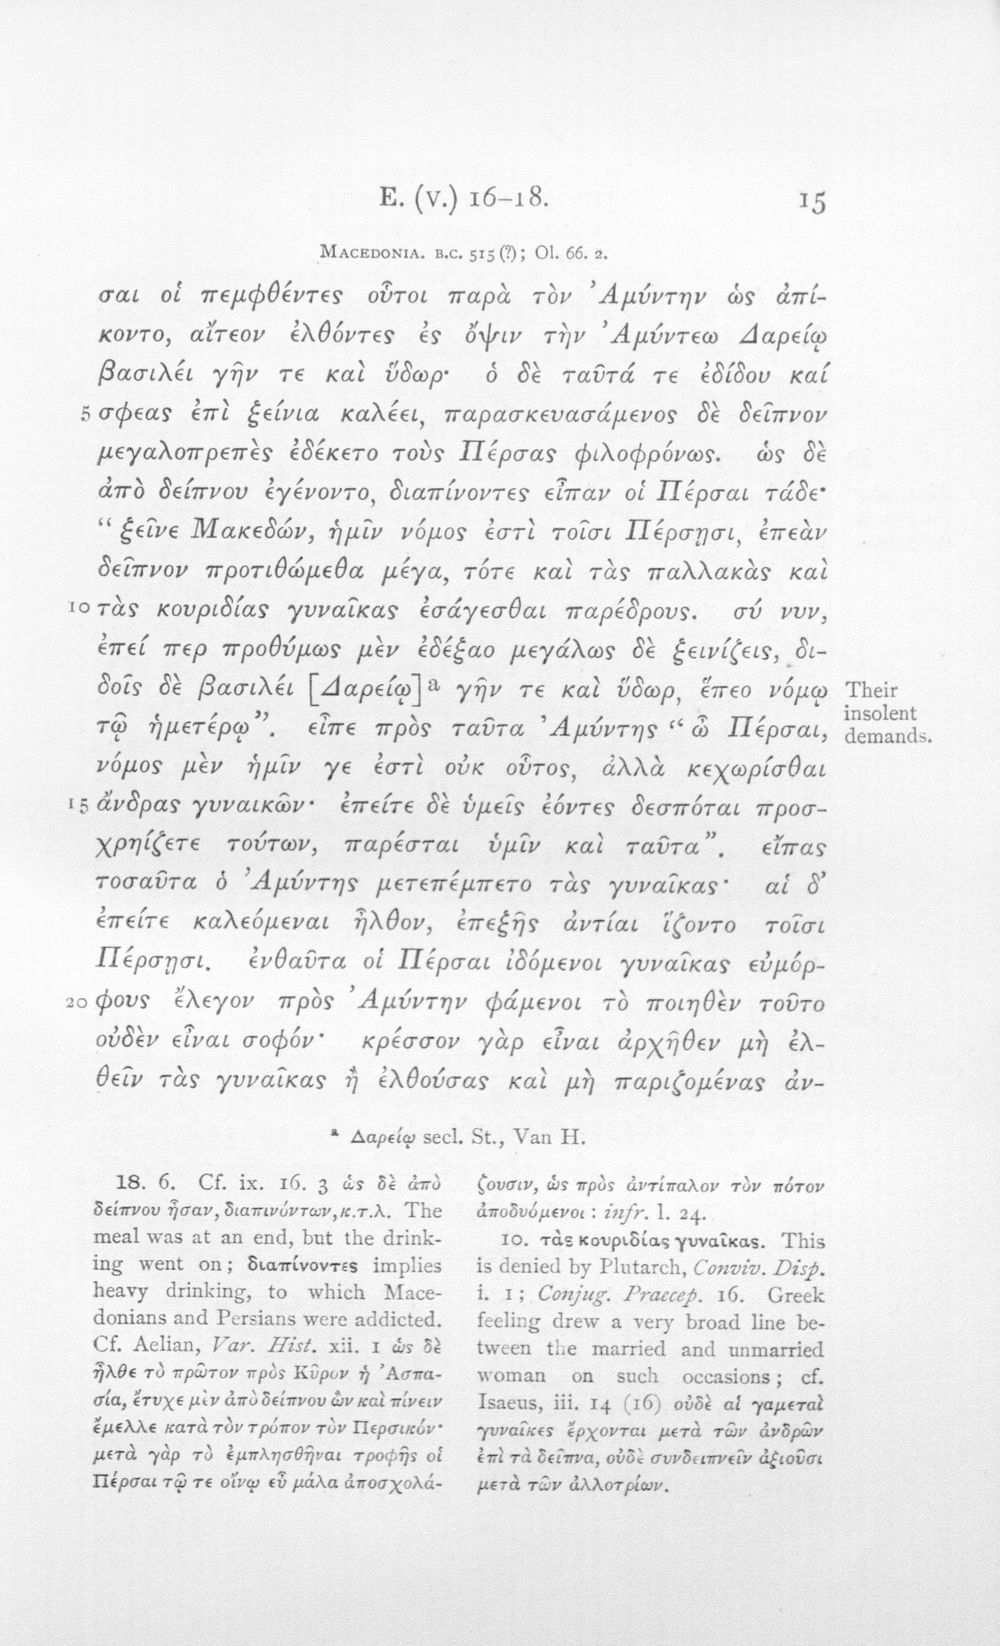 E. (V.) 16–18.
15
MACEDONIA. B.C. 515 (?); Ol. 66. 2.
σαι οἱ πεμφθέντες οὗτοι παρὰ τὸν Ἀμύντην ὡς ἀπί-
κοντο, αἴτεον ἐλθόντες ἐς ὄψιν τὴν Ἀμύντεω Δαρείῳ
βασιλέι γῆν τε καὶ ὕδωρ· ὁ δὲ ταῦτά τε ἐδίδου καί
5 σφεας ἐπὶ ξείνια καλέει, παρασκευασάμενος δὲ δεῖπνον
μεγαλοπρεπὲς ἐδέκετο τοὺς Πέρσας φιλοφρόνως. ὡς δὲ
ἀπὸ δείπνου ἐγένοντο, διαπίνοντες εἶπαν οἱ Πέρσαι τάδε·
“ξεῖνε Μακεδών, ἡμῖν νόμος ἐστὶ τοῖσι Πέρσῃσι, ἐπεὰν
δεῖπνον προτιθώμεθα μέγα, τότε καὶ τὰς παλλακὰς καὶ
10 τὰς κουριδίας γυναῖκας ἐσάγεσθαι παρέδρους. σύ νυν,
ἐπεί περ προθύμως μὲν ἐδέξαο μεγάλως δὲ ξεινίζεις, δι-
δοῖς δὲ βασιλέι [Δαρείῳ]ᵃ γῆν τε καὶ ὕδωρ, ἕπεο νόμῳ
τῷ ἡμετέρῳ”. εἶπε πρὸς ταῦτα Ἀμύντης “ὦ Πέρσαι,
νόμος μὲν ἡμῖν γε ἐστὶ οὐκ οὗτος, ἀλλὰ κεχωρίσθαι
15 ἄνδρας γυναικῶν· ἐπείτε δὲ ὑμεῖς ἐόντες δεσπόται προσ-
χρηίζετε τούτων, παρέσται ὑμῖν καὶ ταῦτα”. εἴπας
τοσαῦτα ὁ Ἀμύντης μετεπέμπετο τὰς γυναῖκας· αἱ δ’
ἐπείτε καλεόμεναι ἦλθον, ἐπεξῆς ἀντίαι ἵζοντο τοῖσι
Πέρσῃσι. ἐνθαῦτα οἱ Πέρσαι ἰδόμενοι γυναῖκας εὐμόρ-
20 φους ἔλεγον πρὸς Ἀμύντην φάμενοι τὸ ποιηθὲν τοῦτο
οὐδὲν εἶναι σοφόν· κρέσσον γὰρ εἶναι ἀρχῆθεν μὴ ἐλ-
θεῖν τὰς γυναῖκας ἢ ἐλθούσας καὶ μὴ παριζομένας ἀν-
Their
insolent
demands.
ᵃ Δαρείῳ secl. St., Van H.
18. 6. Cf. ix. 16. 3 ὡς δὲ ἀπὸ
δείπνου ἦσαν, διαπινόντων, κ.τ.λ. The
meal was at an end, but the drink-
ing went on; διαπίνοντες implies
heavy drinking, to which Mace-
donians and Persians were addicted.
Cf. Aelian, Var. Hist. xii. 1 ὡς δὲ
ἦλθε τὸ πρῶτον πρὸς Κῦρον ἡ Ἀσπα-
σία, ἔτυχε μὲν ἀπὸ δείπνου ὢν καὶ πίνειν
ἔμελλε κατὰ τὸν τρόπον τὸν Περσικόν·
μετὰ γὰρ τὸ ἐμπλησθῆναι τροφῆς οἱ
Πέρσαι τῷ τε οἴνῳ εὖ μάλα ἀποσχολά-
ζουσιν, ὡς πρὸς ἀντίπαλον τὸν πότον
ἀποδυόμενοι : infr. l. 24.
10. τὰς κουριδίας γυναῖκας. This
is denied by Plutarch, Conviv. Disp.
i. 1; Conjug. Praecep. 16. Greek
feeling drew a very broad line be-
tween the married and unmarried
woman on such occasions; cf.
Isaeus, iii. 14 (16) οὐδὲ αἱ γαμεταὶ
γυναῖκες ἔρχονται μετὰ τῶν ἀνδρῶν
ἐπὶ τὰ δεῖπνα, οὐδὲ συνδειπνεῖν ἀξιοῦσι
μετὰ τῶν ἀλλοτρίων.